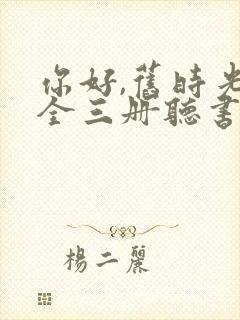 你好,舊時光
全三册聽書
楊二麗